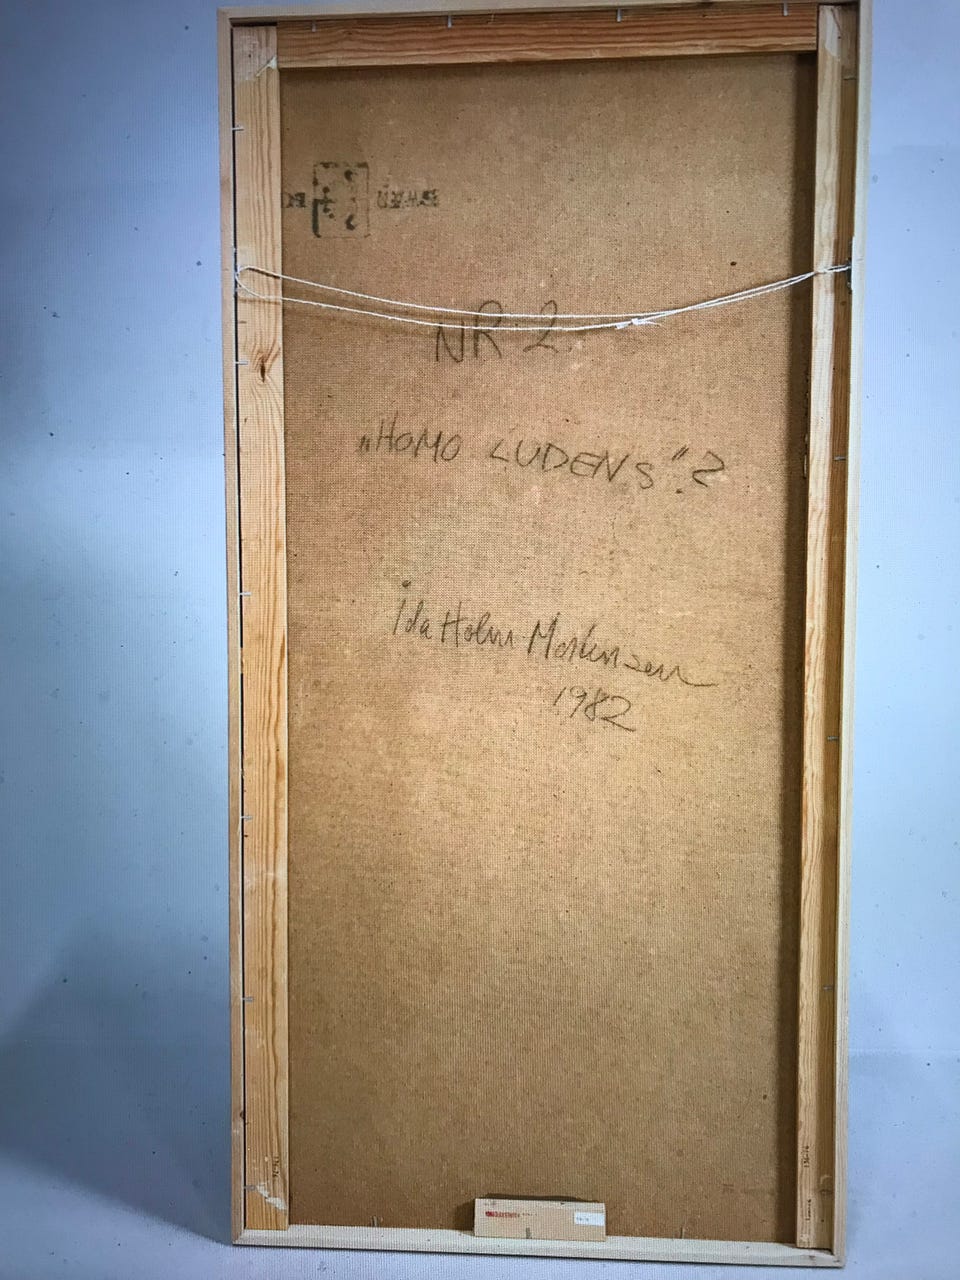 NR 2.
„HOMO LUDENS"?
Ida Holm Mortensen
1982